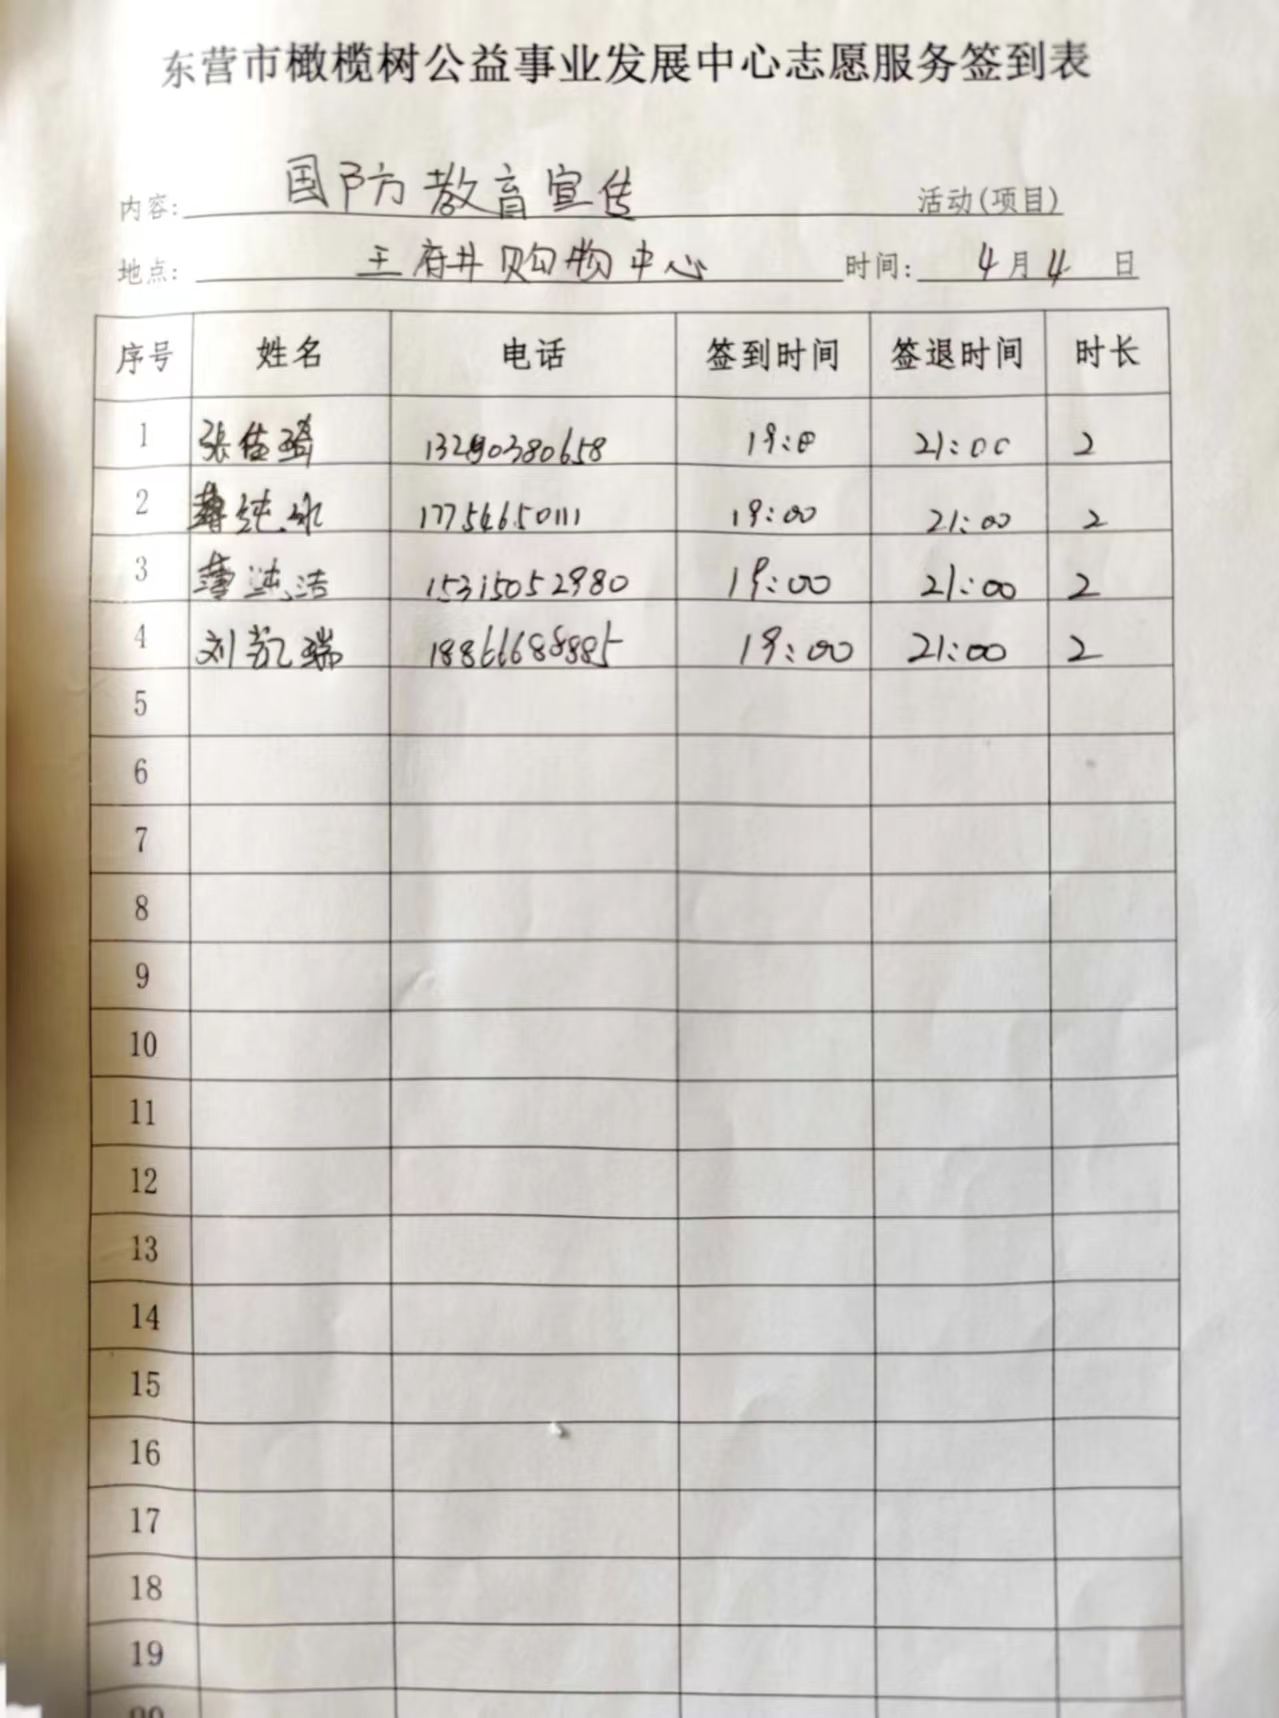 东营市橄榄树公益事业发展中心志愿服务签到表
内容: 国防教育宣传 活动(项目)
地点: 王府井购物中心 时间: 4月4日
序号 姓名 电话 签到时间 签退时间 时长
1 张佳琦 21:00 2
2 17754650111 19:00 21:00 2
3 15315052980 19:00 21:00 2
4 刘凯瑞 18866688885 19:00 21:00 2
5
6
7
8
9
10
11
12
13
14
15
16
17
18
19